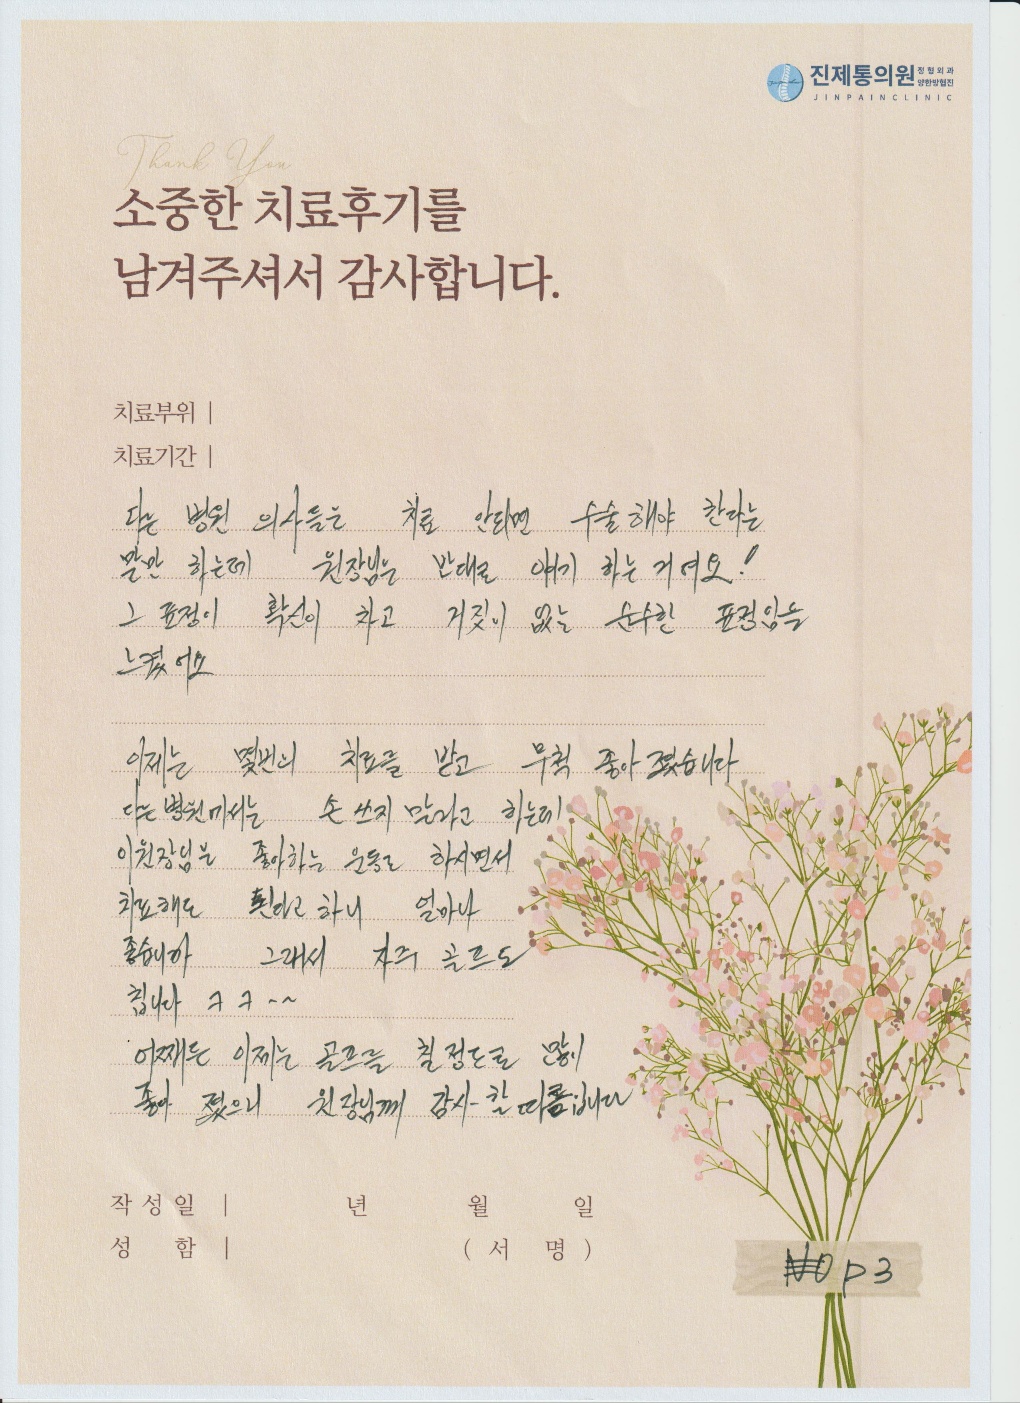 진제통의원 정형외과
양한방협진
JINPAINCLINIC
Thank You
소중한 치료후기를
남겨주셔서 감사합니다.
치료부위 |
치료기간 |
다른 병원 의사들은 치료 안되면 수술해야 한다는
말만 하는데 원장님은 반대로 얘기 하는 거예요!
그 표정이 확신이 차고 거짓이 없는 순수한 표정임을
느꼈어요
이제는 몇번의 치료를 받고 무척 좋아졌습니다
다른병원에서는 손 쓰지 말라고 하는데
이원장님은 좋아하는 운동도 하시면서
치료해도 된다고 하니 얼마나
좋습니까 그래서 자주 골프도
칩니다 ㅋㅋ~~
어쨌든 이제는 골프를 칠 정도로 많이
좋아 졌으니 원장님께 감사할 따름입니다
작성일 | 년 월 일
성 함 | (서 명)
p3